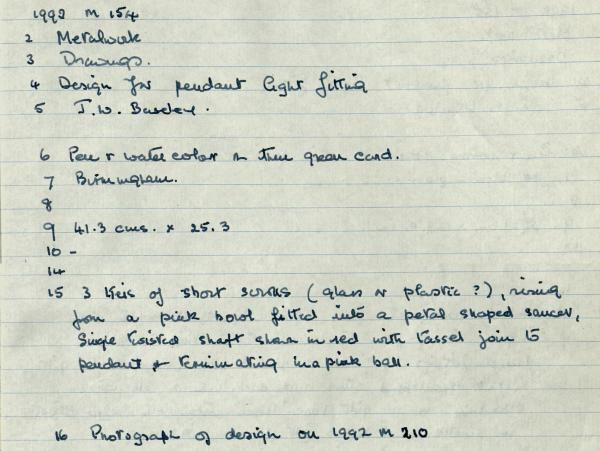 1992 M 154
2 Metalwork
3 Drawings.
4 Design for pendant light fitting
5 J.W.
6 Pen & water color on thin green card.
7 Birmingham.
8
9 41.3 cms. x 25.3
10 -
14
15 3 tiers of short scrolls (glass or plastic ?), rising
from a pink bowl fitted into a petal shaped saucer,
Single twisted shaft shown in red with tassel join to
pendant & terminating in a pink ball.
16 Photograph of design on 1992 M 210